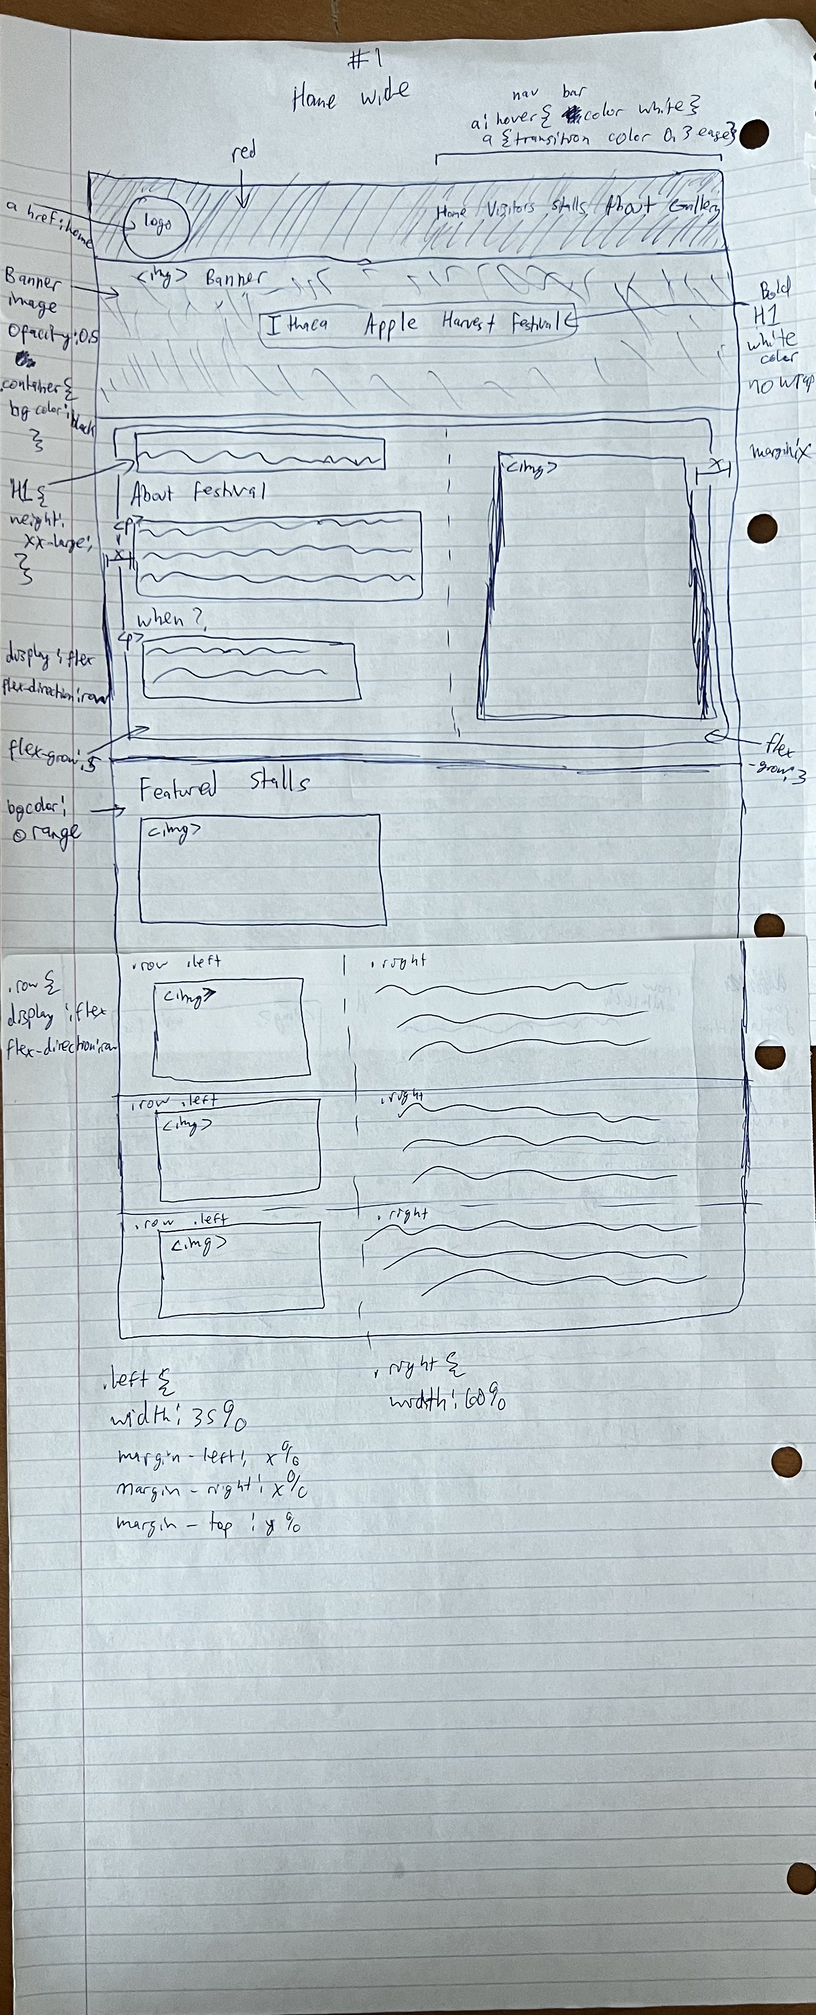 #1
Home wide
nav bar
a:hover{ color white}
a {transition color 0.3 ease}
red
a href:home
logo
Home Visitors Stalls About Gallery
<img> Banner
Banner
image
Opacity:0.5
container{
bg color:black
}
Ithaca Apple Harvest Festival
Bold
H1
white
color
no wrap
margin:x
x
<img>
H1 {
weight:
xx-large;
}
About Festival
<p>
x
when?
<p>
display:flex
flex-direction:row
flex-grow:5
flex
-grow:3
Featured Stalls
bgcolor:
orange
<img>
.row .left
.right
.row {
display:flex
flex-direction:row
<img>
.row .left
.right
<img>
.row .left
.right
<img>
.left {
width: 35%
margin-left: x%
margin-right: x%
margin-top: y%
.right {
width: 60%